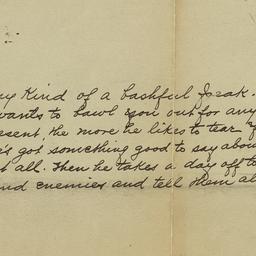 ny kind of a bashful freak.
wants to bawl you out for any
esent, the more he likes to tear
's got something good to say abou
t all. Then he takes a day off to
nd enemies and tell them al